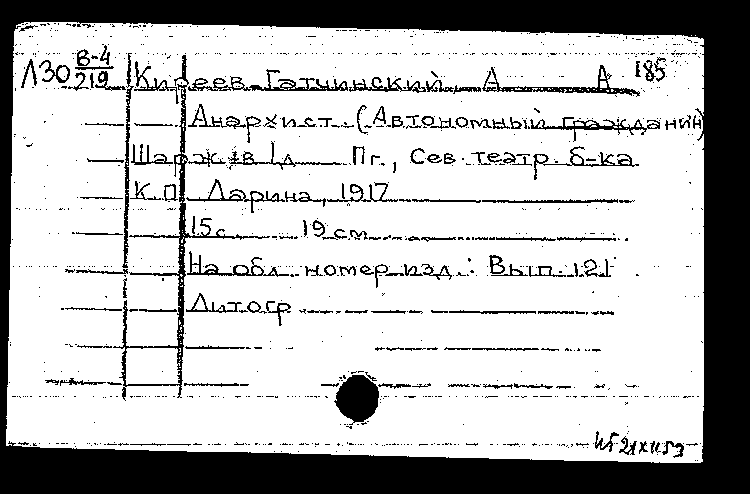 Л30 В-4/219 Киреев-Гатчинский, А А 185
Анархист. (Автономный гражданин)
Шарж в 1 д Пг., Сев. театр. б-ка
К.П. Ларина, 1917
15с 19см
На обл номер изд.: Вып. 121
Литогр